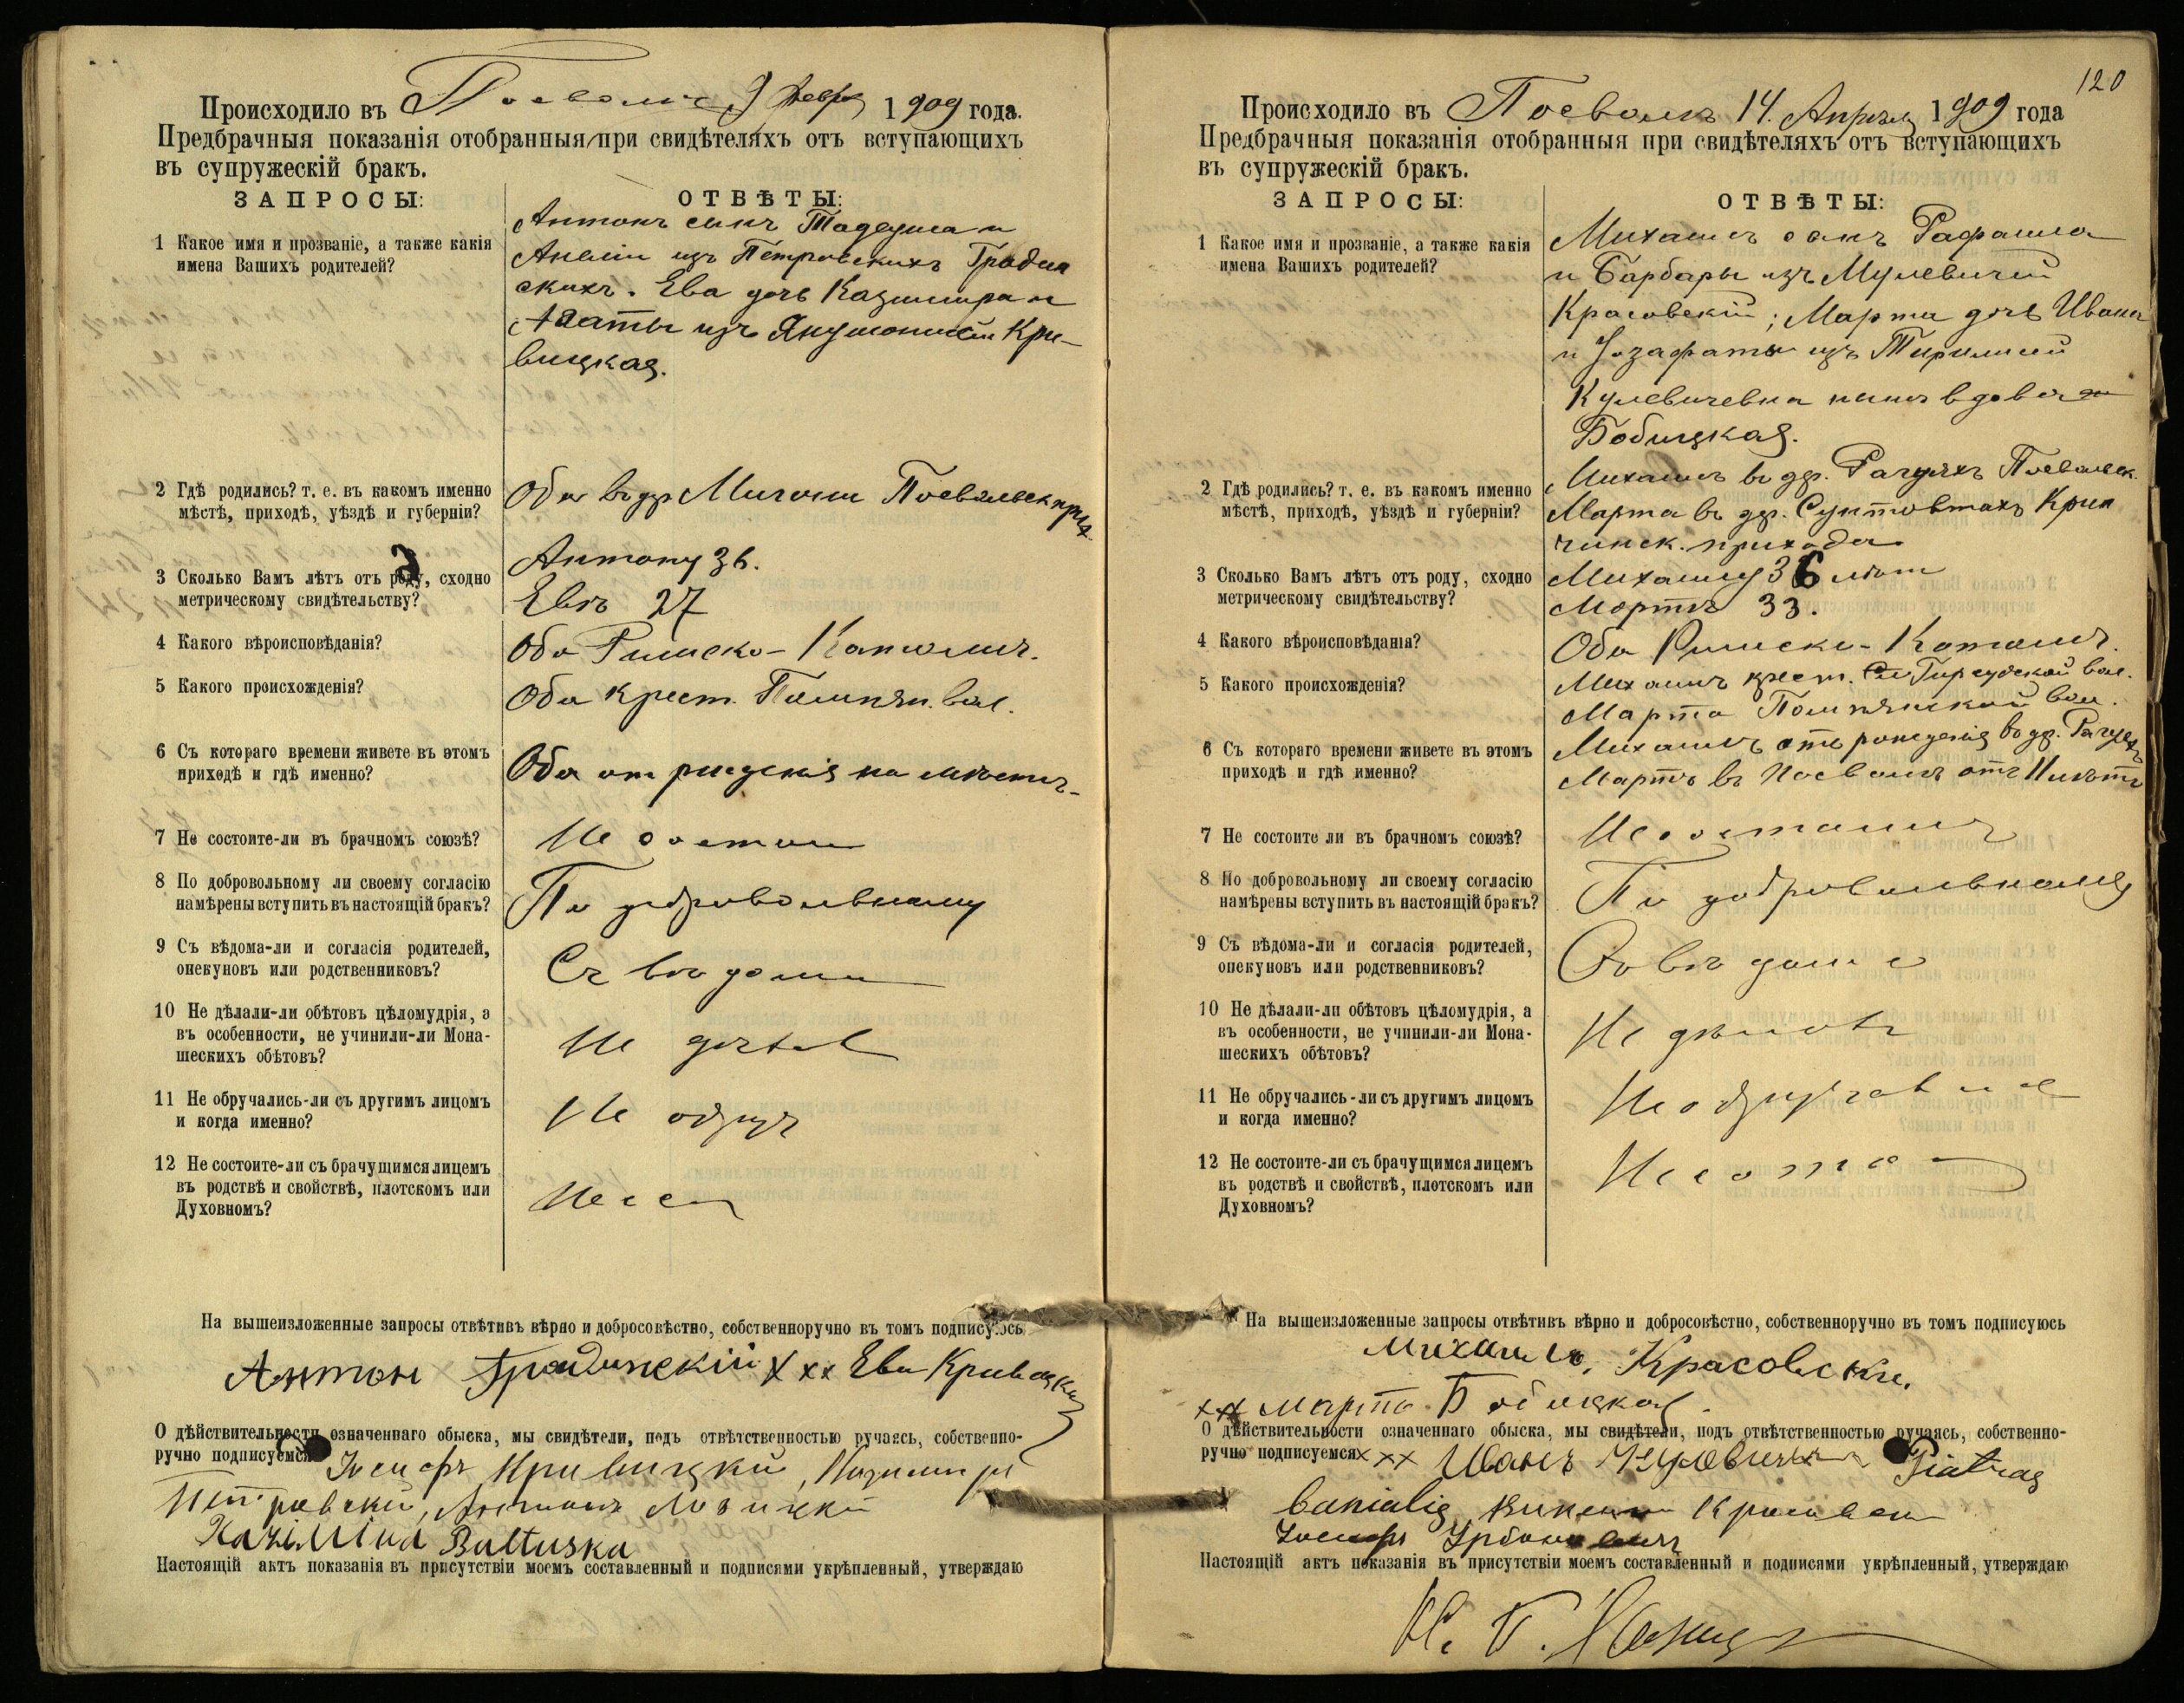 Происходило въ Поеволѣ 9 Февр 1909 года.
Предбрачныя показанія отобранныя при свидѣтеляхъ отъ вступающихъ
въ супружескій бракъ.
ЗАПРОСЫ:
ОТВѢТЫ:
1 Какое имя и прозваніе, а также какія
имена Вашихъ родителей?
Антонъ сынъ Тадеуша и
Анеліи изъ Петровскихъ Градин
скихъ. Ева дочь Казимира и
Агаты изъ Янушонисъ Кри-
вицкая.
2 Гдѣ родились? т. е. въ какомъ именно
мѣстѣ, приходѣ, уѣздѣ и губерніи?
Оба въ др Поевольск прих.
3 Сколько Вамъ лѣтъ отъ роду, сходно
метрическому свидѣтельству?
Антону 36.
Евѣ 27
4 Какого вѣроисповѣданія?
Оба Римско-Католич.
5 Какого происхожденія?
Оба крест. Помпян. вол.
6 Съ котораго времени живете въ этомъ
приходѣ и гдѣ именно?
Оба от рожденія на мѣстѣ
7 Не состоите-ли въ брачномъ союзѣ?
Не состоим
8 По добровольному ли своему согласію
намѣрены вступить въ настоящій бракъ?
По добровольному
9 Съ вѣдома-ли и согласія родителей,
опекуновъ или родственниковъ?
Съ вѣдома
10 Не дѣлали-ли обѣтовъ цѣломудрія, а
въ особенности, не учинили-ли Мона-
шескихъ обѣтовъ?
Не
11 Не обручались-ли съ другимъ лицомъ
и когда именно?
Не обруч
12 Не состоите-ли съ брачущимся лицемъ
въ родствѣ и свойствѣ, плотскомъ или
Духовномъ?
Не
На вышеизложенные запросы отвѣтивъ вѣрно и добросовѣстно, собственноручно въ томъ подписуюсь
Антон Градинскій xxx Ева Кривицкая
О дѣйствительности означеннаго обыска, мы свидѣтели, подъ отвѣтственностью ручаясь, собственно-
ручно подписуемся
Іосифъ Кривицкій, Казимиръ
Петровскій, Антонъ Лозицкій
Kazimira Baltuska
Настоящій актъ показанія въ присутствіи моемъ составленный и подписями укрѣпленный, утверждаю
120
Происходило въ Поеволѣ 14. Апрѣля 1909 года
Предбрачныя показанія отобранныя при свидѣтеляхъ отъ вступающихъ
въ супружескій бракъ.
ЗАПРОСЫ:
ОТВѢТЫ:
1 Какое имя и прозваніе, а также какія
имена Вашихъ родителей?
Михаилъ сынъ Рафаила
и Барбары изъ Мулевичей
Красовскій; Марта дочь Ивана
и Іозафаты изъ
Кулевичевна нынѣ вдова
Бобицкая.
2 Гдѣ родились? т. е. въ какомъ именно
мѣстѣ, приходѣ, уѣздѣ и губерніи?
Михаилъ въ др. Рагуяхъ Поевольск.
Марта въ др. Сунтовтахъ Крин
чинск. прихода
3 Сколько Вамъ лѣтъ отъ роду, сходно
метрическому свидѣтельству?
Михаилу 36 лѣт
Мартѣ 33.
4 Какого вѣроисповѣданія?
Оба Римско-Католич.
5 Какого происхожденія?
Михаилъ крест. Гирсудской вол.
Марта Помпянской вол.
6 Съ котораго времени живете въ этомъ
приходѣ и гдѣ именно?
Михаилъ отъ рожденія въ др. Рагуяхъ
Марта въ Поеволѣ отъ 11 лѣтъ
7 Не состоите ли въ брачномъ союзѣ?
Не состоимъ
8 По добровольному ли своему согласію
намѣрены вступить въ настоящій бракъ?
По добровольному
9 Съ вѣдома-ли и согласія родителей,
опекуновъ или родственниковъ?
Съ вѣдома
10 Не дѣлали-ли обѣтовъ цѣломудрія, а
въ особенности, не учинили-ли Мона-
шескихъ обѣтовъ?
Не дѣлали
11 Не обручались-ли съ другимъ лицомъ
и когда именно?
Не обручались
12 Не состоите-ли съ брачущимся лицемъ
въ родствѣ и свойствѣ, плотскомъ или
Духовномъ?
Не состоим
На вышеизложенные запросы отвѣтивъ вѣрно и добросовѣстно, собственноручно въ томъ подписуюсь
Михаилъ Красовски.
xxx Марта Бобицкая.
О дѣйствительности означеннаго обыска, мы свидѣтели, подъ отвѣтственностью ручаясь, собственно-
ручно подписуемся xxx Иванъ Piatras
Іосифъ Урбоновичъ
Настоящій актъ показанія въ присутствіи моемъ составленный и подписями укрѣпленный, утверждаю